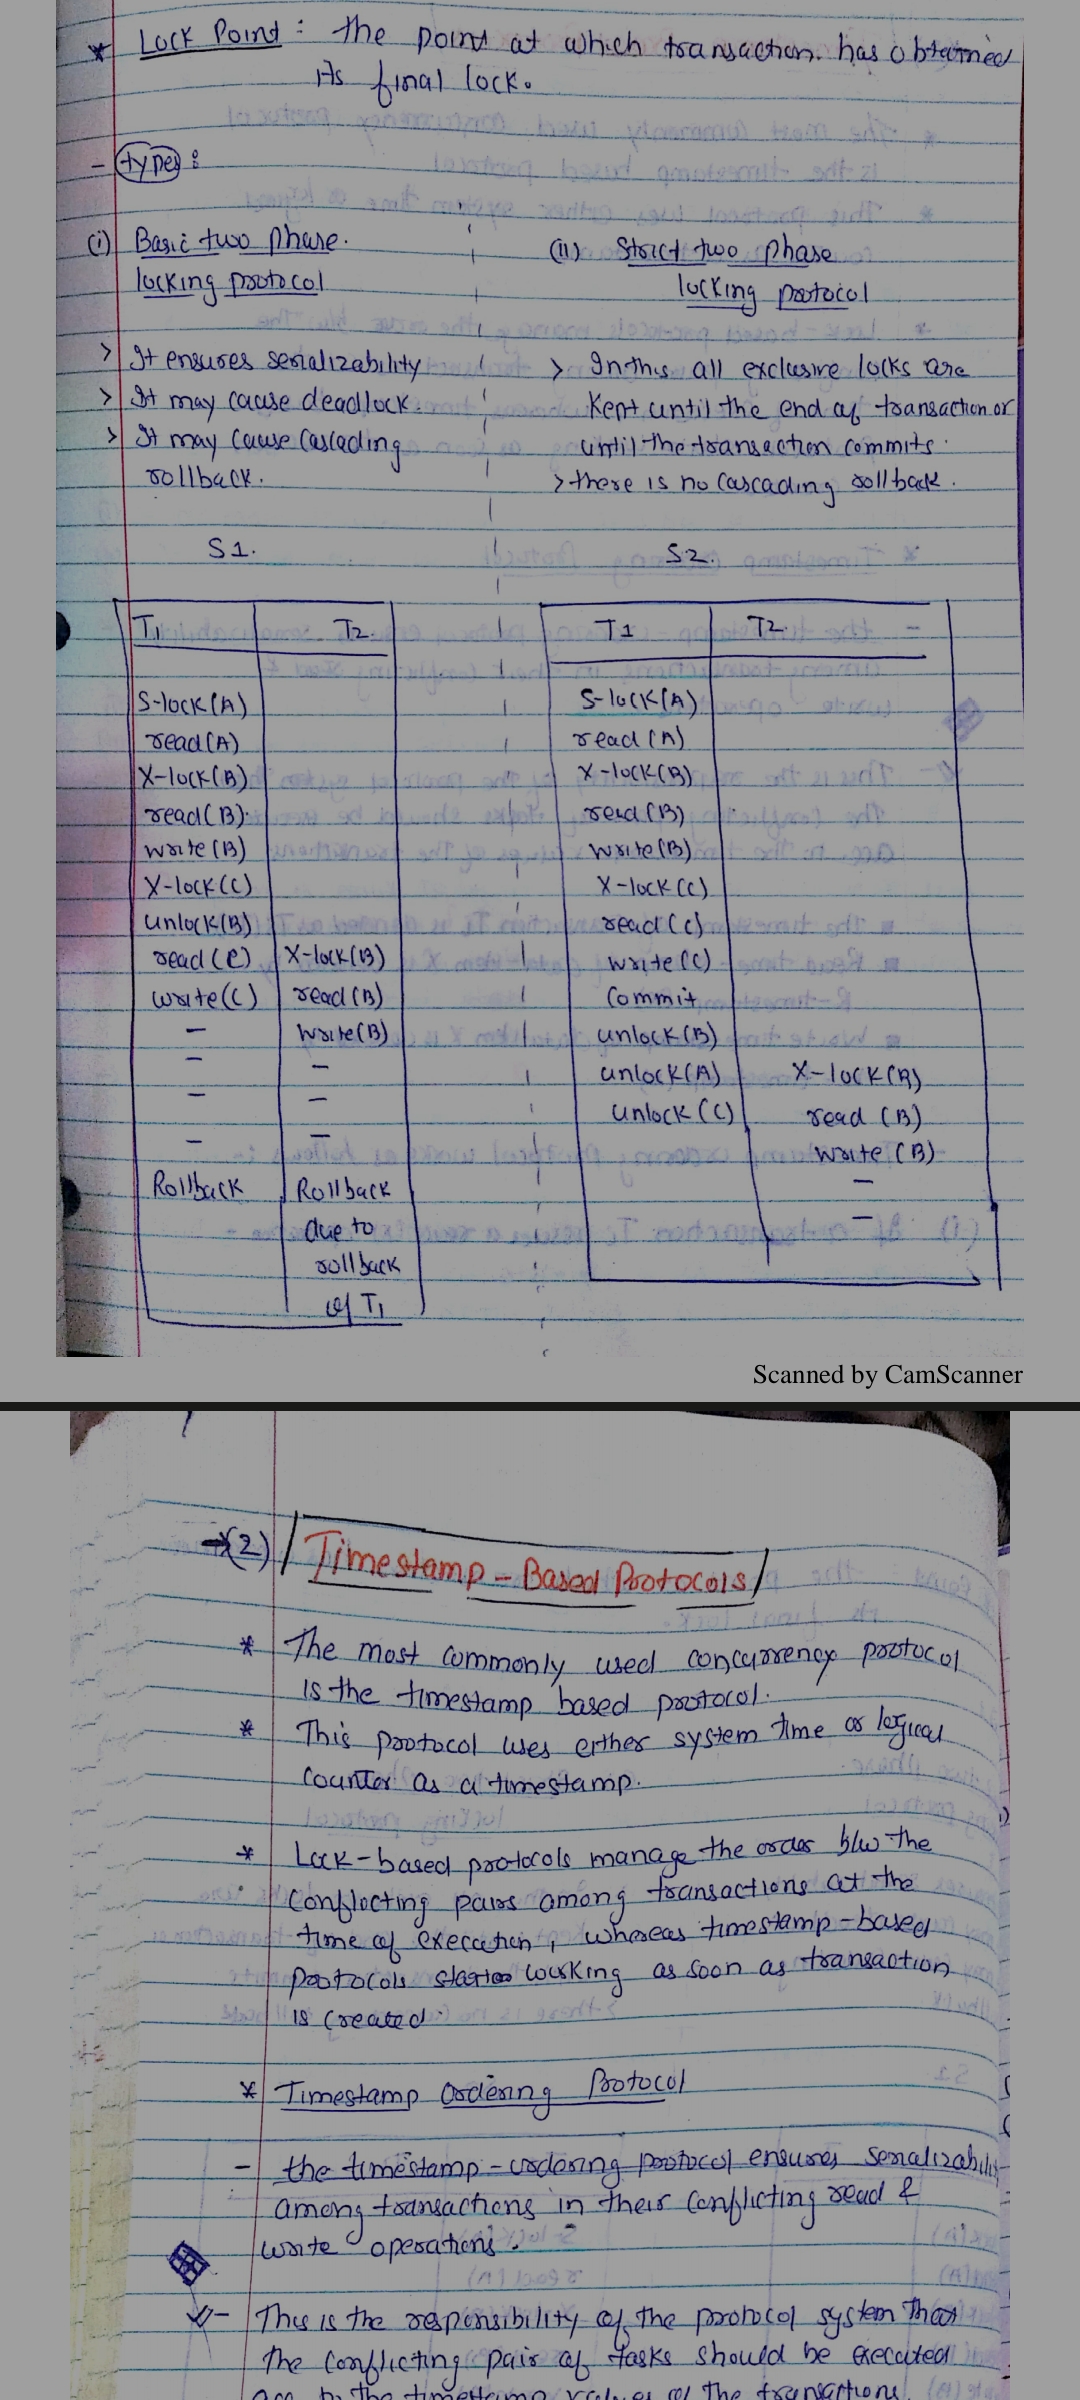 * Lock Point : the point at which transaction has obtained
its final lock.
- types :
(i) Basic two phase
locking protocol
> It ensures serializability
> It may cause deadlock.
> It may cause cascading
rollback.
(ii) Strict two phase
locking protocol
> In this all exclusive locks are
kept until the end of transaction or
until the transaction commits.
> there is no cascading rollback.
S1.
T1 T2
S-lock(A)
read(A)
X-lock(B)
read(B)
write(B)
X-lock(C)
unlock(B)
read(C) X-lock(B)
write(C) read(B)
- write(B)
- -
- -
- -
Rollback Rollback
due to
rollback
of T1
S2.
T1 T2
S-lock(A)
read(A)
X-lock(B)
read(B)
write(B)
X-lock(C)
read(C)
write(C)
Commit
unlock(B)
unlock(A) X-lock(B)
unlock(C) read(B)
write(B)
-
-
Scanned by CamScanner
→(2) Timestamp-Based Protocols
* The most commonly used concurrency protocol
is the timestamp based protocol.
* This protocol uses either system time or logical
counter as a timestamp.
* Lock-based protocols manage the order b/w the
conflicting pairs among transactions at the
time of execution, whereas timestamp-based
protocols working as soon as transaction
is created
* Timestamp Ordering Protocol
- the timestamp-ordering protocol ensures serializability
among transactions in their conflicting read &
write operations.
- This is the responsibility of the protocol system that
the conflicting pair of tasks should be executed
acc. to the timestamp values of the transactions.